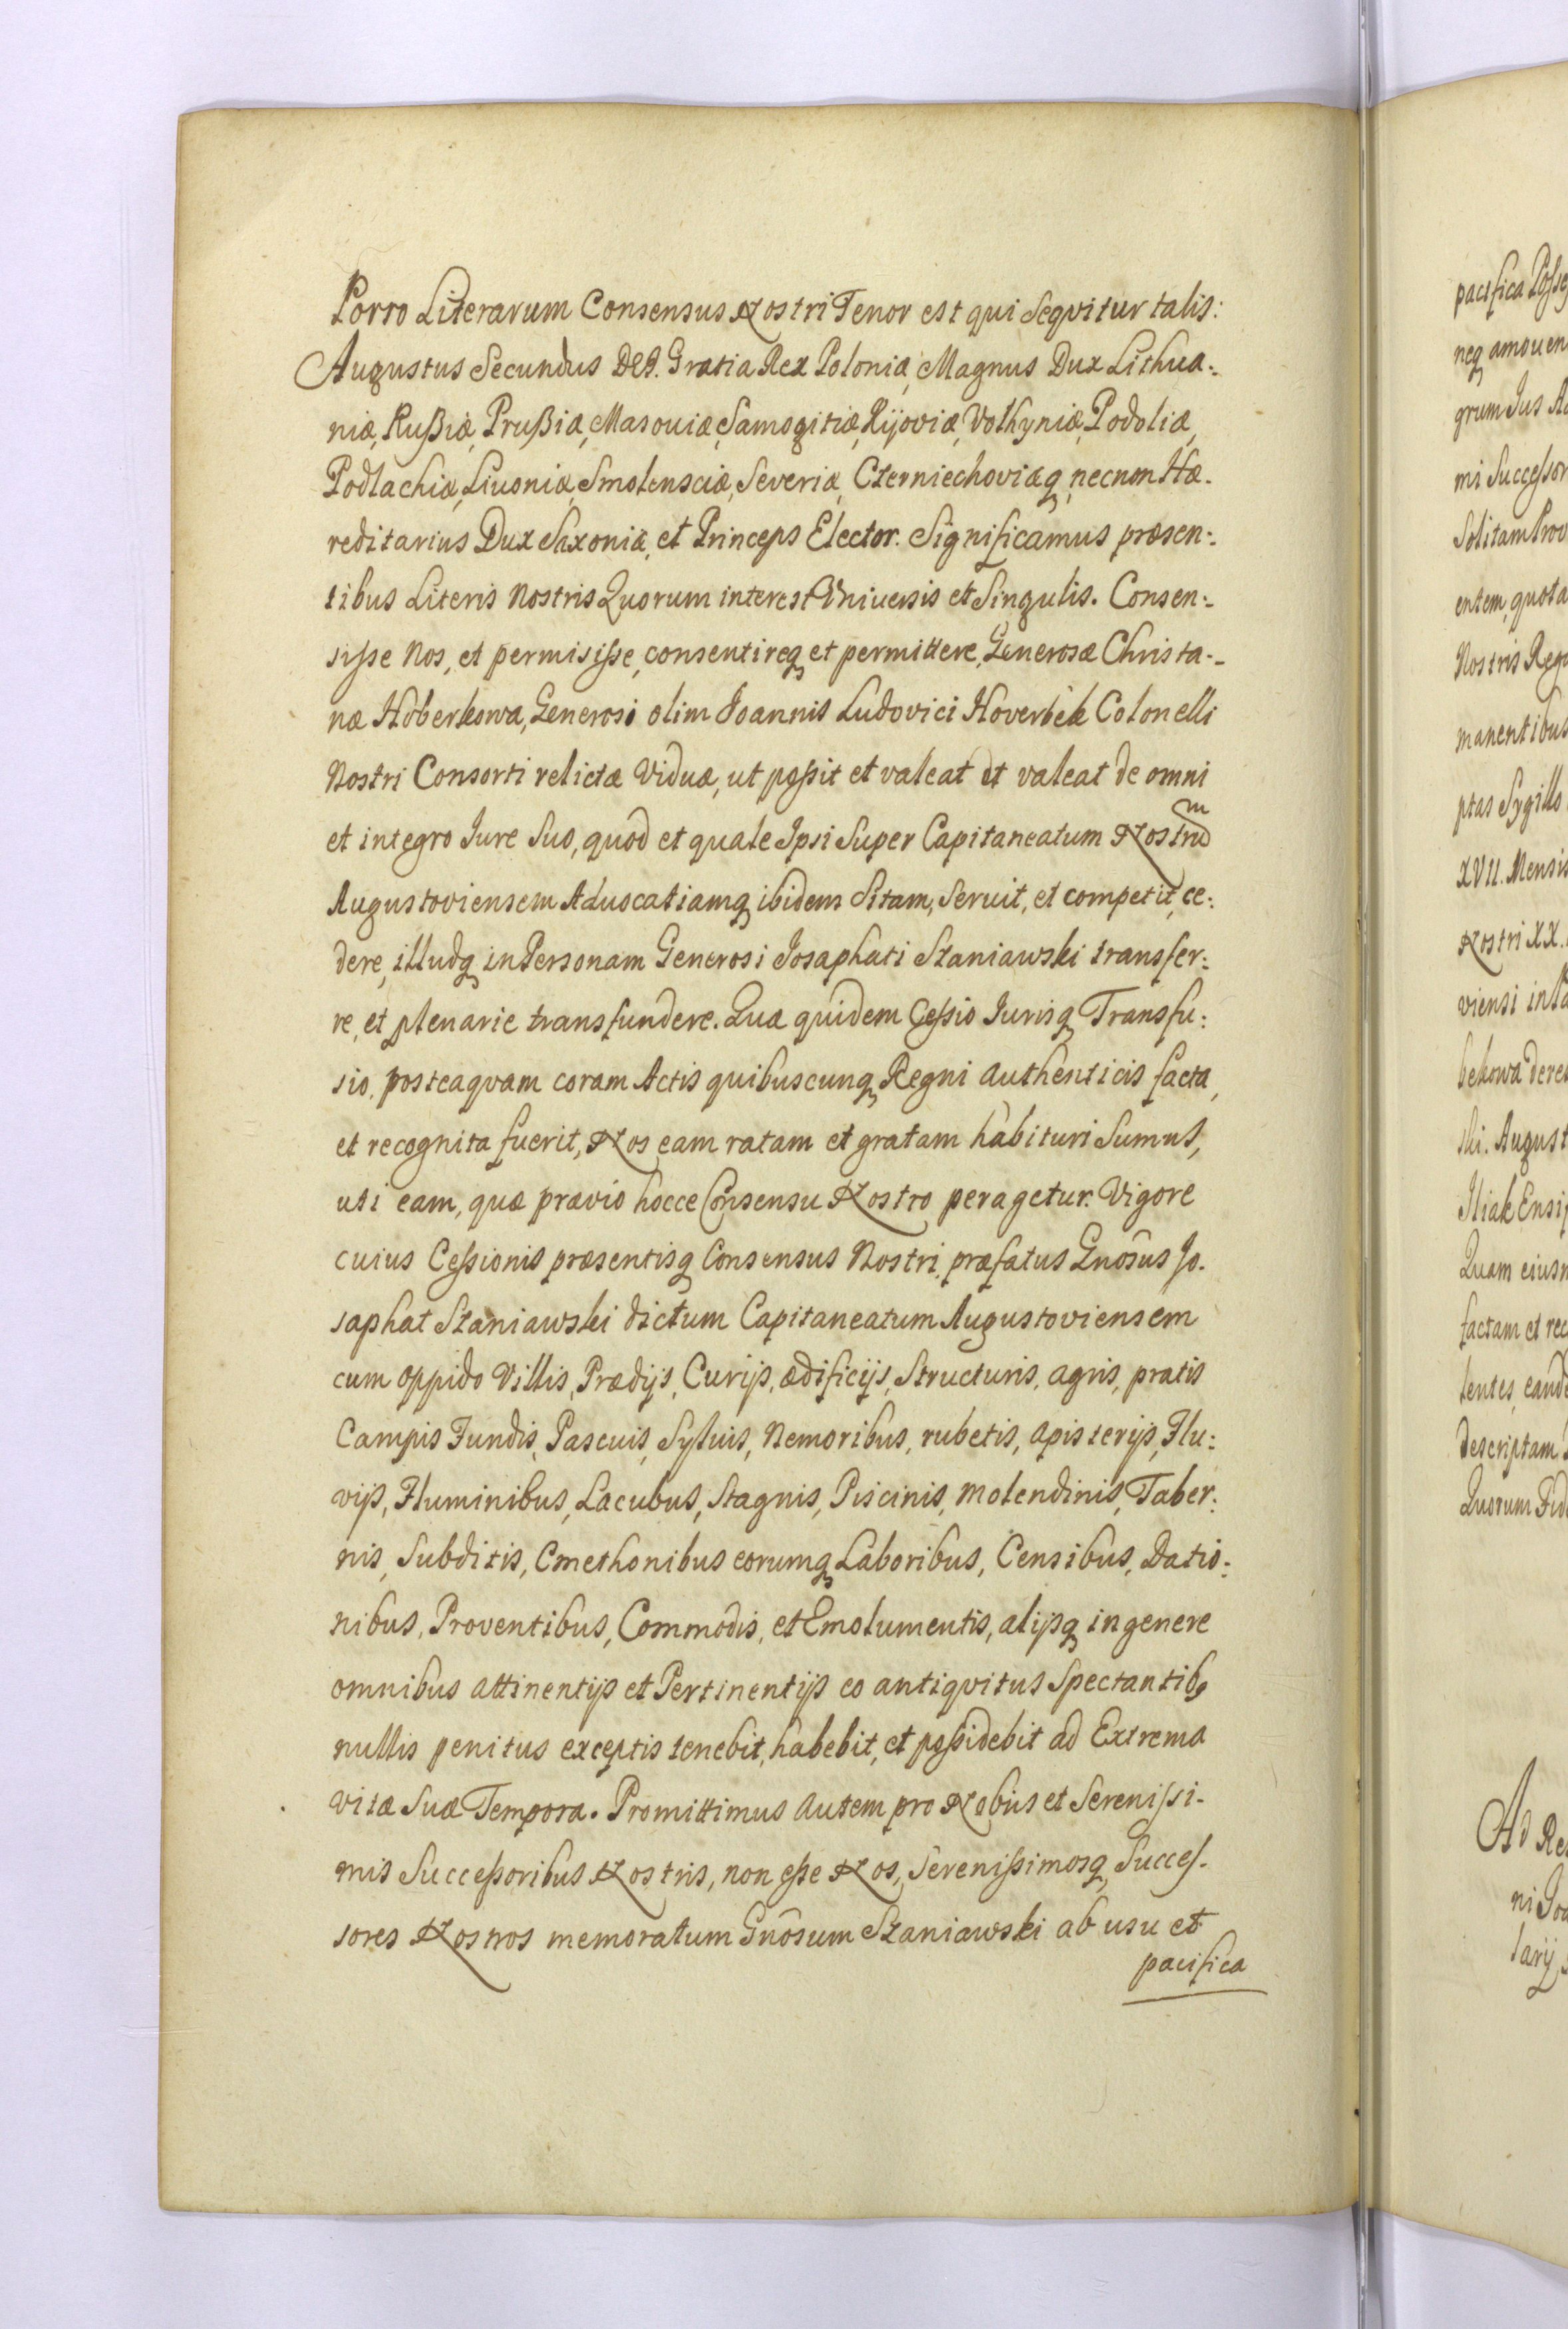 Porro Literarum Consensus Nostri Tenor est qui Seqvitur talis:
Augustus Secundus DEI. Gratia Rex Poloniæ, Magnus Dux Lithua:
niæ, Rußiæ, Prußiæ, Masouiæ, Samogitiæ, Kijoviæ, Volhyniæ, Podoliæ,
Podlachiæ, Liuoniæ, Smolensciæ, Severiæ, Czerniechoviæq, necnon Hæ-
reditarius Dux Saxoniæ, et Princeps Elector. Significamus præsen:
tibus Literis Nostris Quorum interest Vniuersis et Singulis. Consen:
sisse Nos, et permisisse, consentireq et permittere, Generosæ Christa-
næ Hoberkowa, Generosi olim Joannis Ludovici Hoverbek Colonelli
Nostri Consorti relictæ Viduæ, ut poßit et valeat et valeat de omni
et integro Iure Suo, quod et quale Ipsi Super Capitaneatum Nostrum
Augustoviensem Aduocatiamq ibidem Sitam, Seruit, et competit, ce:
dere, illudq in Personam Generosi Josaphati Szaniawski transfer:
re, et plenarie transfundere. Quæ quidem Ceßio Jurisq Transfu:
sio, posteaqvam coram Actis quibuscunq Regni Authenticis facta,
et recognita fuerit, Nos eam ratam et gratam habituri Sumus,
uti eam, quæ prævio hocce Consensu Nostro peragetur. Vigore
cuius Ceßionis præsentisq Consensus Nostri, præfatus Gnosus Jo-
saphat Szaniawski dictum Capitaneatum Augustoviensem
cum Oppido Villis, Prædijs, Curijs, ædificijs, Structuris, agris, pratis
Campis Fundis, Pascuis, Syluis, Nemoribus, rubetis, apisterijs, Flu:
vijs, Fluminibus, Lacubus, Stagnis, Piscinis, molendinis, Taber:
nis, Subditis, Cmethonibus eorumq Laboribus, Censibus, Datio:
nibus, Proventibus, Commodis, et Emolumentis, alijsq in genere
omnibus attinentijs et Pertinentijs eo antiqvitus Spectantib9
nullis penitus exceptis tenebit, habebit, et poßidebit ad Extrema
vitæ Suæ Tempora. Promittimus autem pro Nobis et Serenissi-
mis Succeßoribus Nostris, non esse Nos, Sereniſsimosq, Succes-
sores Nostros memoratum Gnosum Szaniawski ab usu et
pacifica
pacifica
neq amouen
grum Jus
mi Successor
Solitam Prov
entem, quota
Nostris Reg
manentibus
ptas Sygillo
XVII. Mensis
Nostri XX.
viensi in
bekowa
ski. August
Iliak Ensi
Quam eius
factam et rec
lentes, eand
descriptam
Quorum Fid
Ad Re
ni Jo
tarij